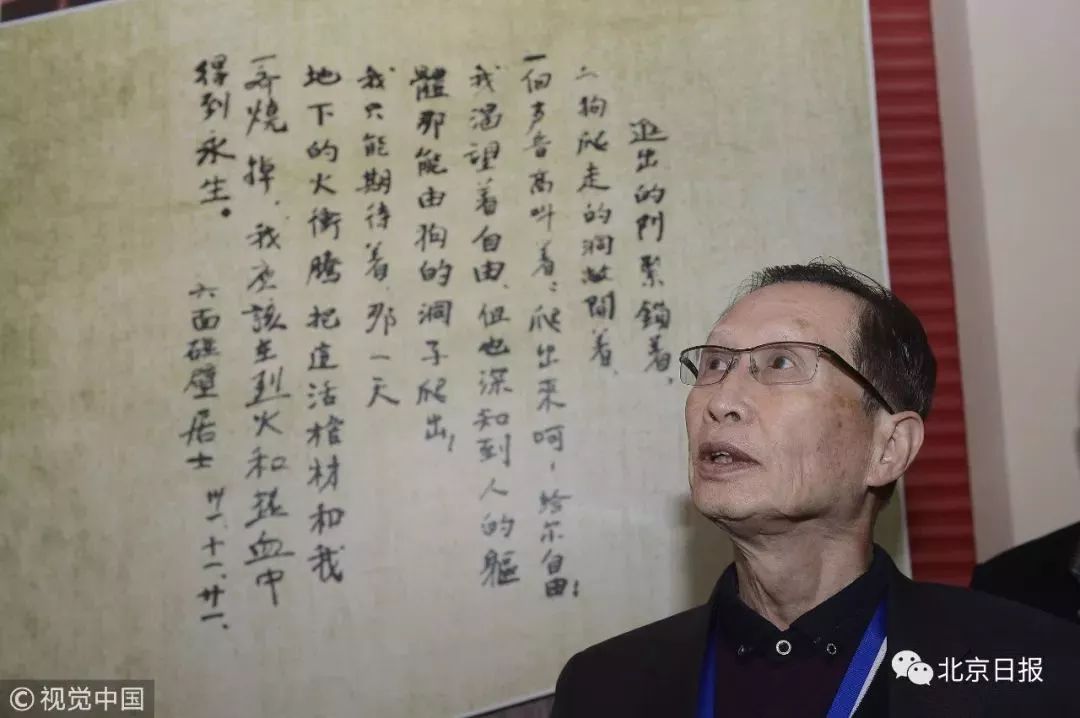 的門緊鎖着,
狗爬走的洞敞開着,
一個声音高叫着:爬出來呵!給尔自由!
我渴望着自由,但也深知到人的軀
體那能由狗的洞子爬出!
我只能期待着,那一天
地下的火衝騰把這活棺材和我
一齊燒掉,我应該在烈火和热血中
得到永生。
六面碰壁居士 卅一、十一、廿一、
©视觉中国
北京日报